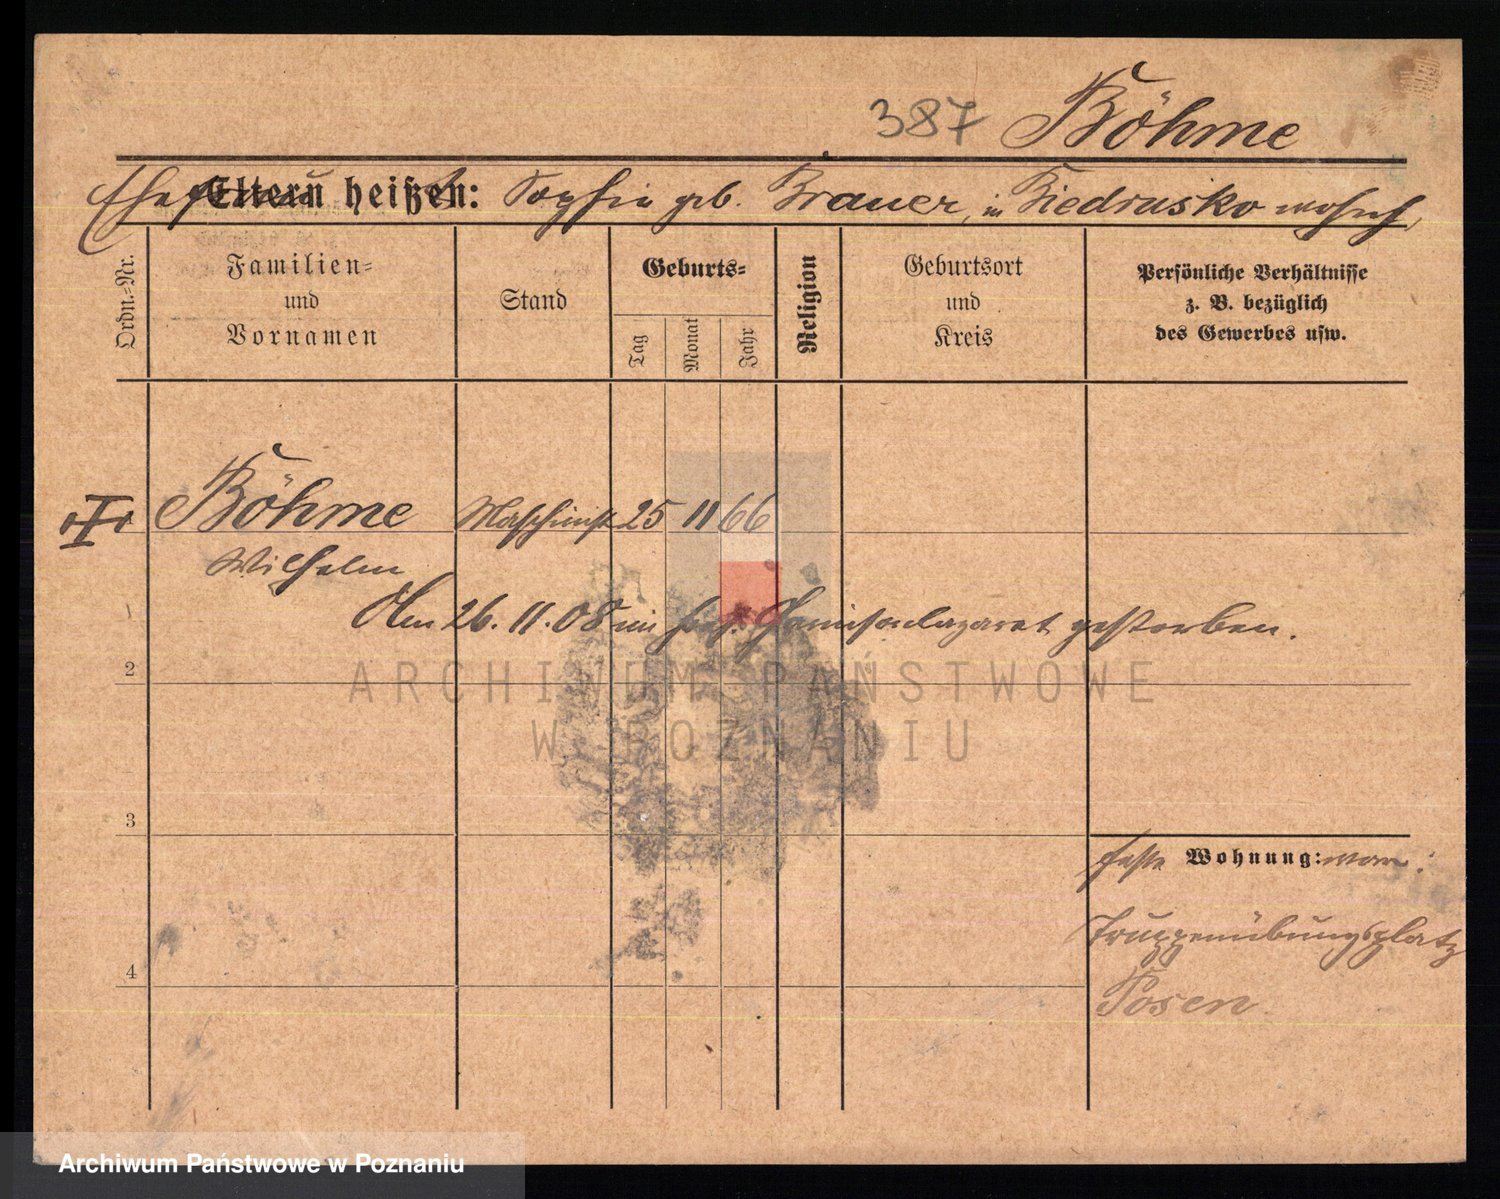 387 Böhme
Ehefrau Eltern heißen: Sophie geb. Brauer, in Biedrusko wohnh.
Ordn.=Nr.
Familien=
und
Vornamen
Stand
Geburts=
Tag
Monat
Jahr
Religion
Geburtsort
und
Kreis
Persönliche Verhältnisse
z. B. bezüglich
des Gewerbes usw.
Böhme Maschinist 25 11 66
Wilhelm
Am 26. 11. 08 im hies. Garnisonlazaret gestorben.
2
ARCHIWUM PAŃSTWOWE
W POZNANIU
3
feste Wohnung: war:
Truppenübungsplatz
4
Posen
Archiwum Państwowe w Poznaniu